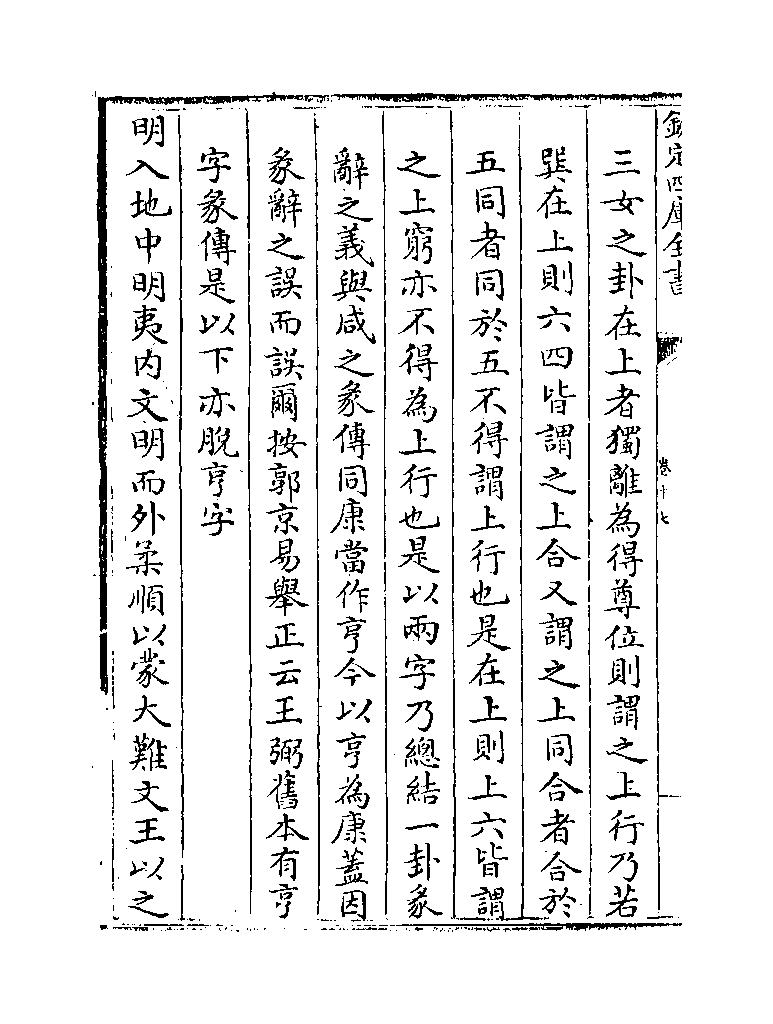 欽定四庫全書
卷十七
三女之卦在上者獨離為得尊位則謂之上行乃若
巽在上則六四皆謂之上合又謂之上同合者合於
五同者同於五不得謂上行也是在上則上六皆謂
之上窮亦不得為上行也是以兩字乃總結一卦彖
辭之義與咸之彖傳同康當作亨今以亨為康蓋因
彖辭之誤而誤爾按郭京易舉正云王弼舊本有亨
字彖傳是以下亦脫亨字
明入地中明夷内文明而外柔順以蒙大難文王以之